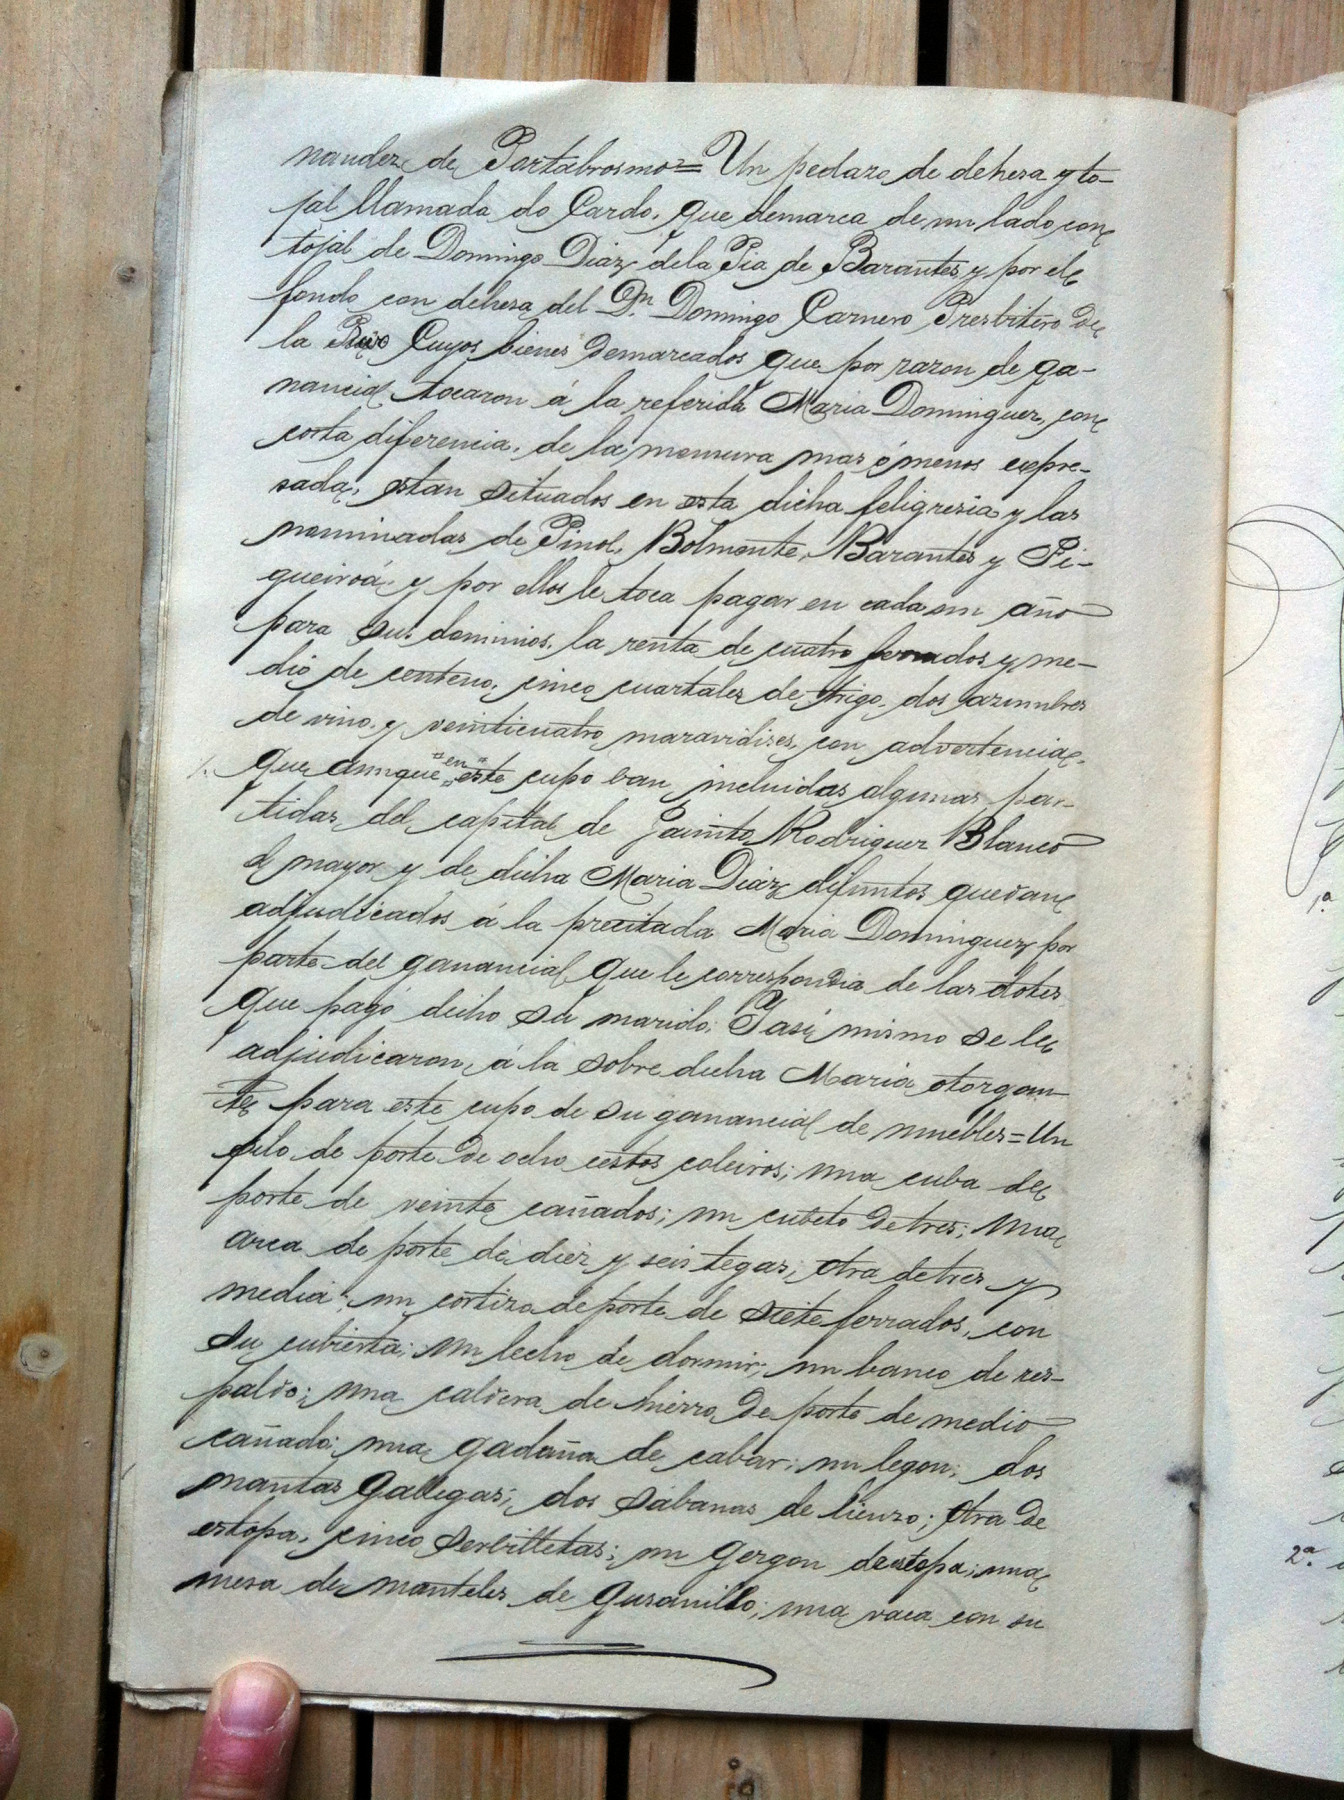 nandez de Portabrosmo = Un pedazo de dehesa y to-
jal llamada do Cardo, que demarca de un lado con
tojal de Domingo Diaz de la Pia de Barantes y por el
fondo con dehesa del Dn. Domingo Carnero Presbitero de
la Cuyos bienes demarcados que por razon de ga-
nancial tocaron á la referida Maria Dominguez, con
corta diferencia, de la mensura mas ó menos expre-
sada, estan situados en esta dicha feligresia y las
nominadas de Pinol, Bolmente, Barantes y Fi-
gueiroá, y por ellos le toca pagar en cada un año
para sus dominios, la renta de cuatro ferrados y me-
dio de centeno, cinco cuartales de trigo, dos azumbres
de vino, y veinticuatro maravidises, con advertencia
que aunque "en" este cupo ban incluidas algunas par-
tidas del capital de Jacinto Rodriguez Blanco
el mayor y de dicha Maria Diaz difuntos quedan
adjudicados á la precitada Maria Dominguez por
parte del ganancial que le correspondia de las dotes
que pagó dicho su marido; Y asi mismo se le
adjudicaron, á la sobre dicha Maria otorgan-
te para este cupo de su ganancial de muebles = Un
pilo de porte de ocho cestos coleiros; una cuba de
porte de veinte cañados; un cubeto de tres; una
arca de porte de diez y seis tegas; otra de tres y
media; un cortizo de porte de siete ferrados, con
su cubierta; un lecho de dormir; un banco de res-
paldo; una caldera de hierro de porte de medio
cañado; una gadaña de cabar; un legon; dos
mantas Gallegas; dos sabanas de lienzo; otra de
estopa, cinco serbilletas; un gergon de estopa; una
mesa de manteles de gusanillo; una vaca con su
1.ª
2.ª